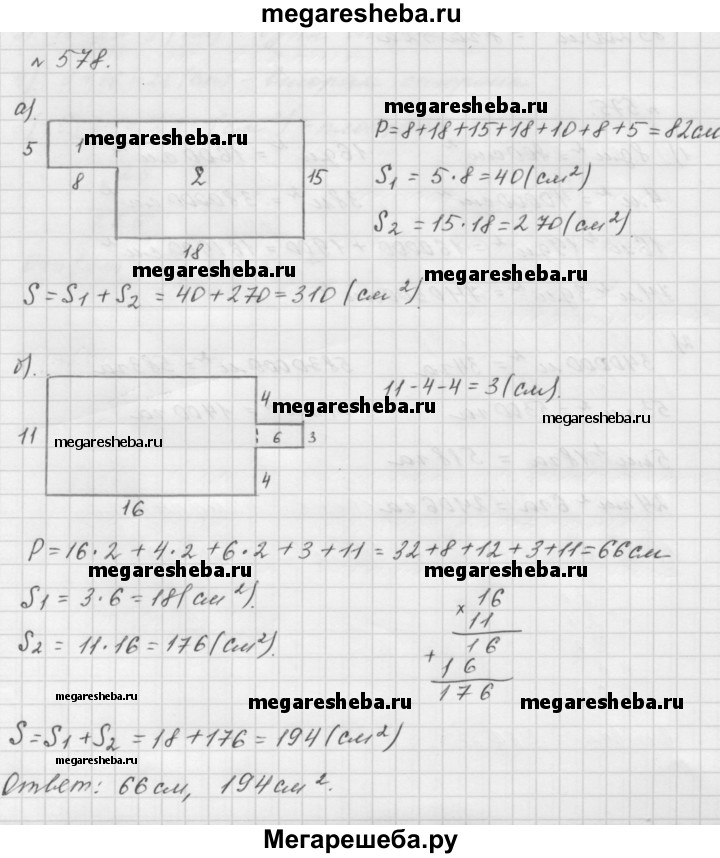 megaresheba.ru
№ 578.
а).
megaresheba.ru
5 1 megaresheba.ru
P=8+18+15+18+10+8+5=82см
8 2 15
S1 = 5·8=40(см²)
S2 = 15·18=270(см²).
18
megaresheba.ru megaresheba.ru
S=S1+S2 = 40+270=310(см²).
б).
4 11-4-4=3(см).
megaresheba.ru megaresheba.ru
11 megaresheba.ru 6 3
4
16
P=16·2+4·2+6·2+3+11=32+8+12+3+11=66см
megaresheba.ru megaresheba.ru
S1 = 3·6=18(см²).
× 16
11
S2 = 11·16=176(см²).
+ 16
16
176
megaresheba.ru megaresheba.ru megaresheba.ru
S=S1+S2=18+176=194(см²)
megaresheba.ru
Ответ: 66см, 194см².
Мегарешеба.ру